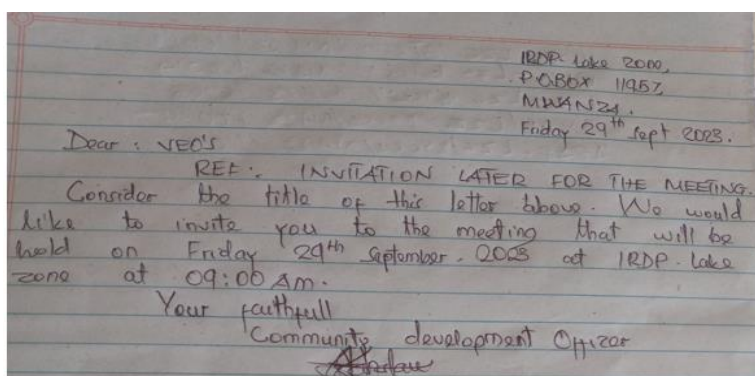 IRDP Lake Zone,
P.O.BOX 11957,
MWANZA.
Friday 29th Sept 2023.
Dear: VEO's
REF:. INVITATION LATER FOR THE MEETING.
Consider the title of this letter above. We would
like to invite you to the meeting that will be
held on Friday 29th September. 2023 at IRDP. Lake
zone at 09:00 AM.
Your faithfull
Community development Officer